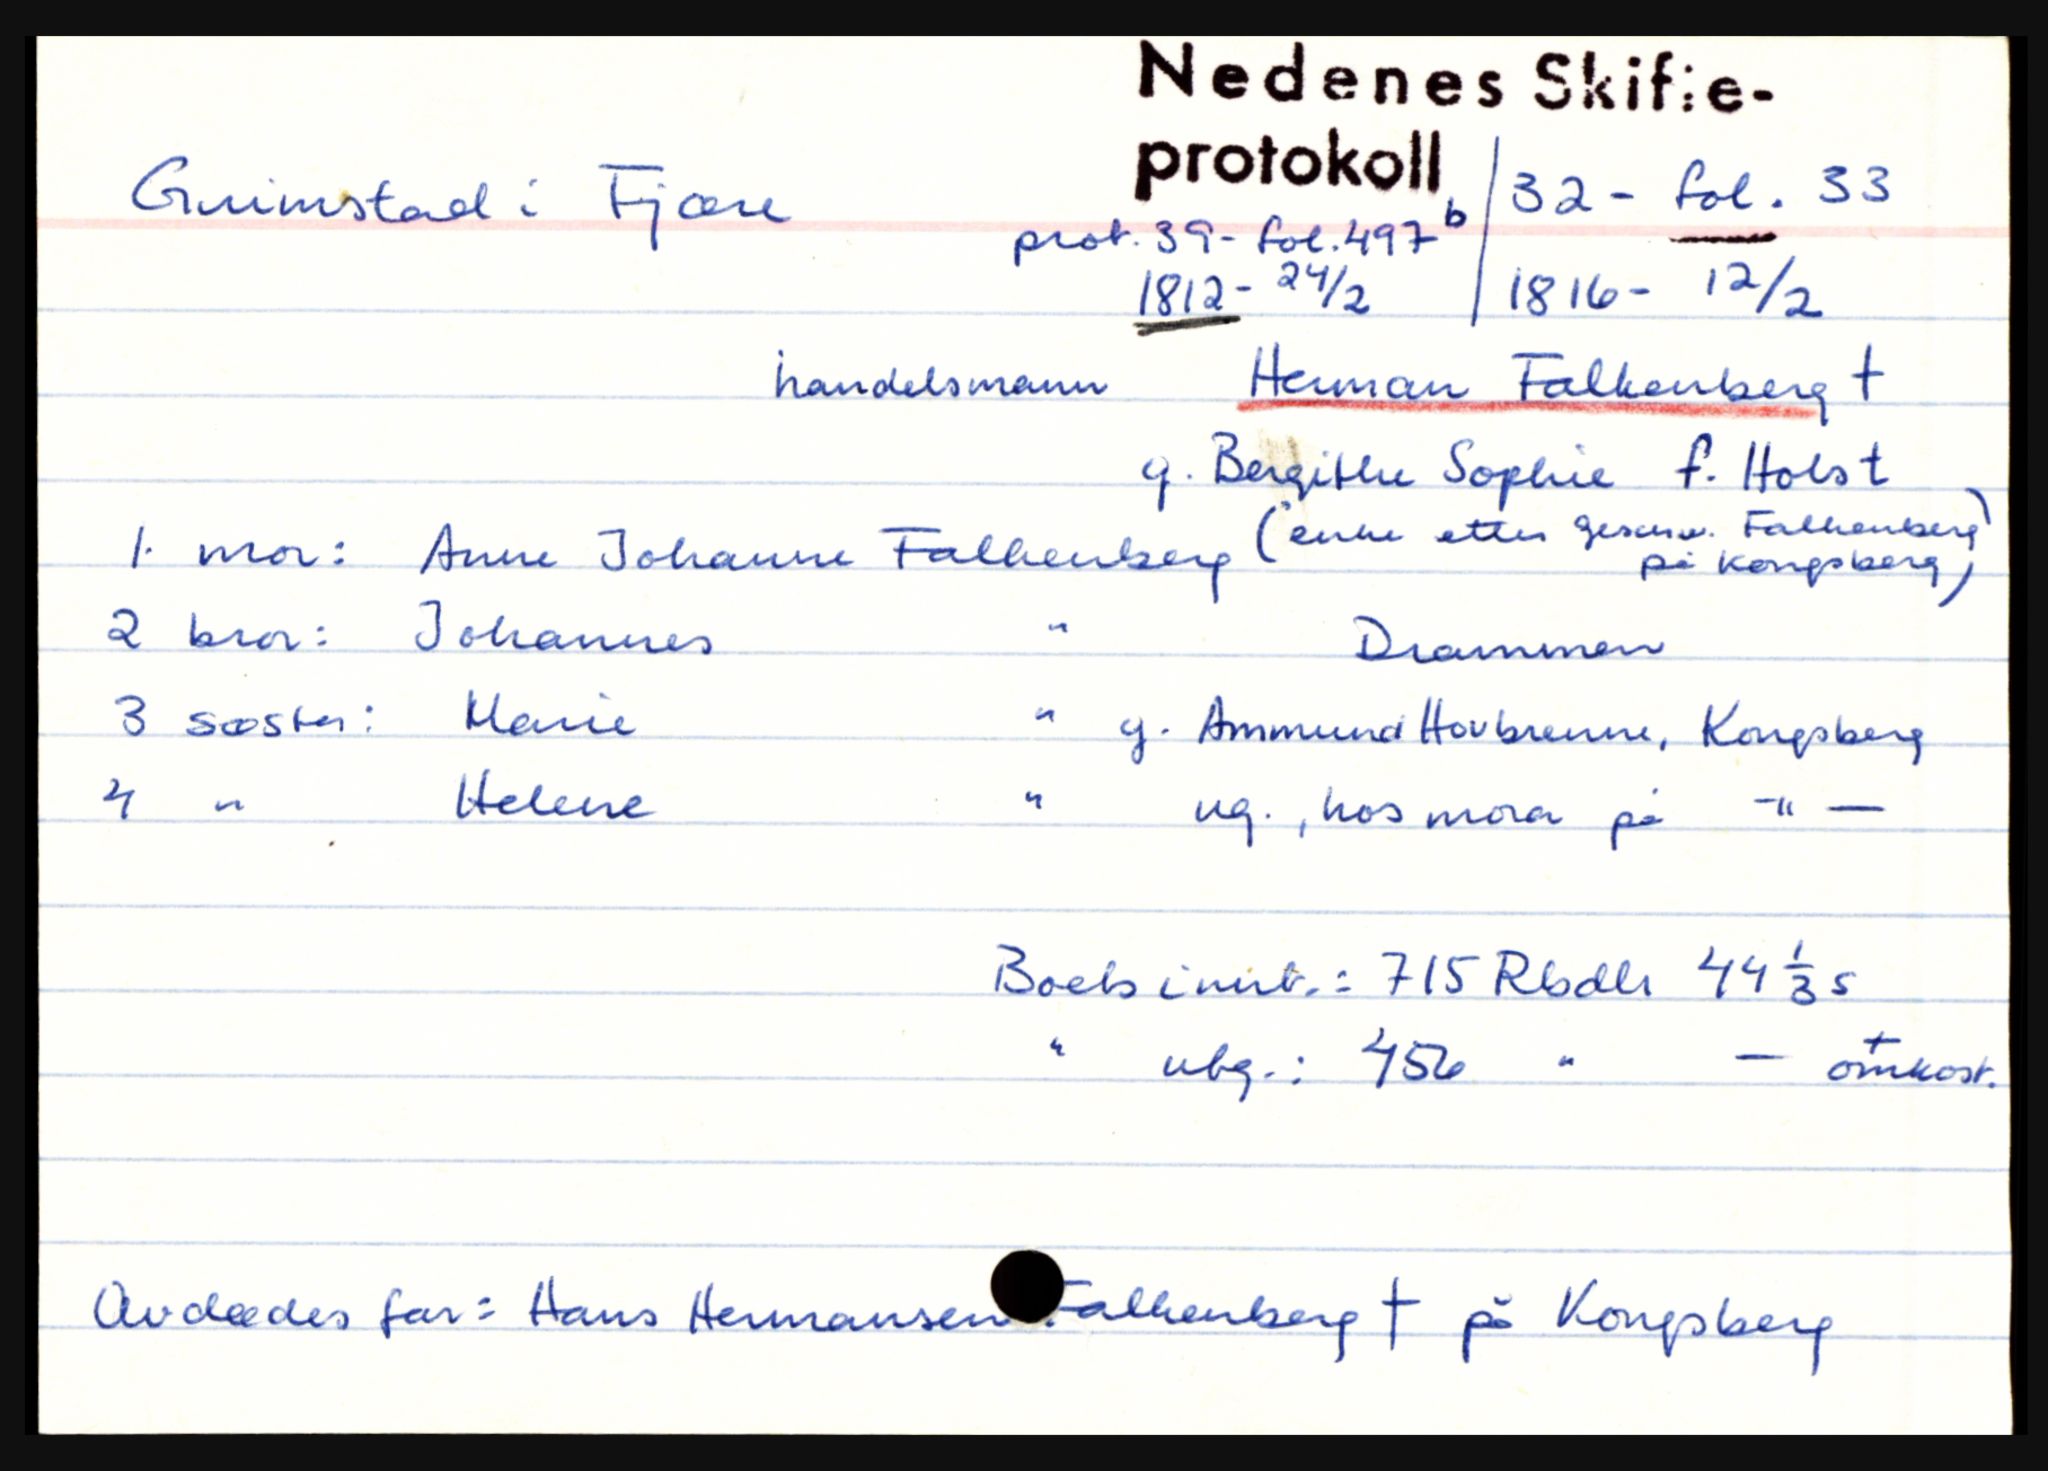 Nedenes Skifte-
protokoll
Grimstad i Fjære
32 - fol. 33
prot. 39 - fol. 497b
1812 - 24/2
1816 - 12/2
handelsmann Herman Falkenberg †
g. Bergithe Sophie f. Holst
1. mor: Anne Johanne Falkenberg (enke etter Geschw. Falkenberg
på Kongsberg)
2 bror: Johannes " Drammen
3 søster: Marie " g. Ammund Hovbrenne, Kongsberg
4 " Helene " ug., hos mora på -"-
Boets innt.: 715 Rbdlr 44 1/3 s
" utg.: 456 " — + omkost.
Avdødes far: Hans Hermansen Falkenberg † på Kongsberg